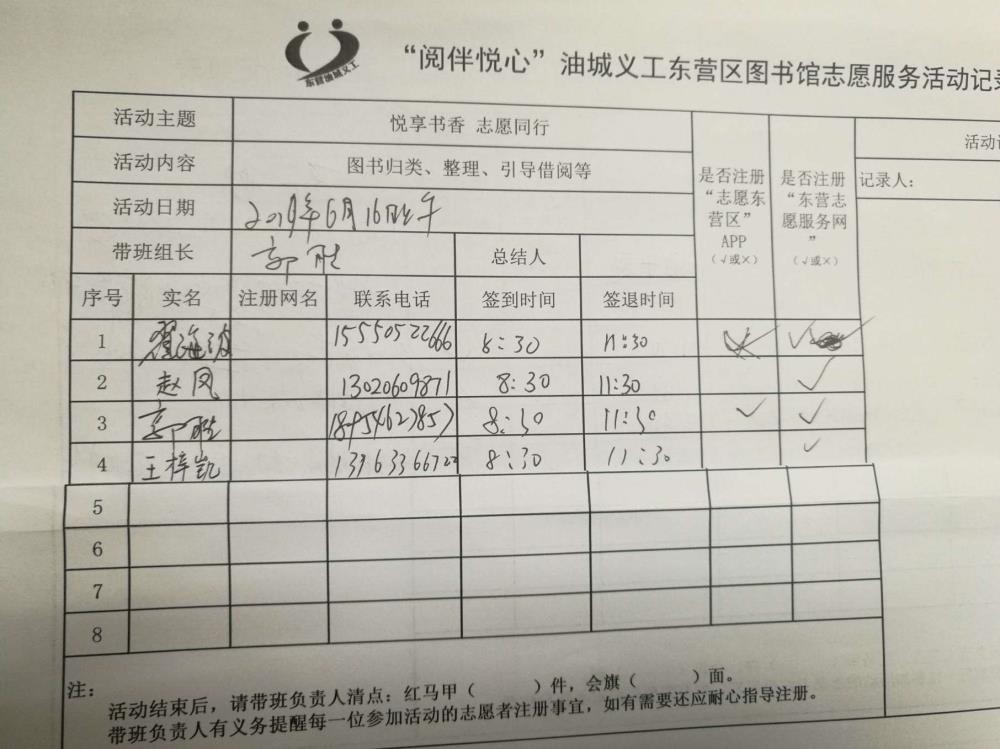 东营油城义工
“阅伴悦心”油城义工东营区图书馆志愿服务活动记录
活动主题 悦享书香 志愿同行
活动内容 图书归类、整理、引导借阅等
活动日期 2019年6月16日上午
带班组长 郭胜 总结人
是否注册“志愿东营区”APP（√或×）
是否注册“东营志愿服务网”（√或×）
活动记
记录人：
序号 实名 注册网名 联系电话 签到时间 签退时间
1 翟海波 15550522666 8:30 11:30 √
2 赵凤 13020609871 8:30 11:30 √
3 郭胜 8:30 11:30 √ √
4 王梓凯 8:30 11:30 √
5
6
7
8
注：
活动结束后，请带班负责人清点：红马甲（ ）件，会旗（ ）面。
带班负责人有义务提醒每一位参加活动的志愿者注册事宜，如有需要还应耐心指导注册。